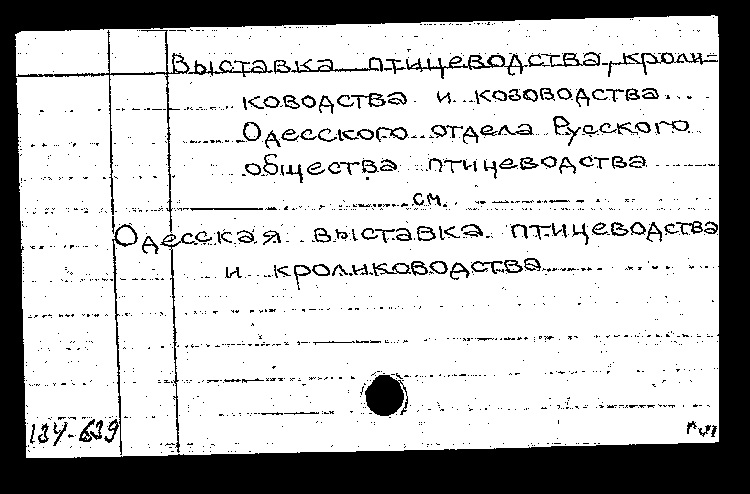 Выставка птицеводства, кроли=
ководства и козоводства
Одесского отдела Русского
общества птицеводства
см.
Одесская выставка птицеводства
и кролиководства
134-639